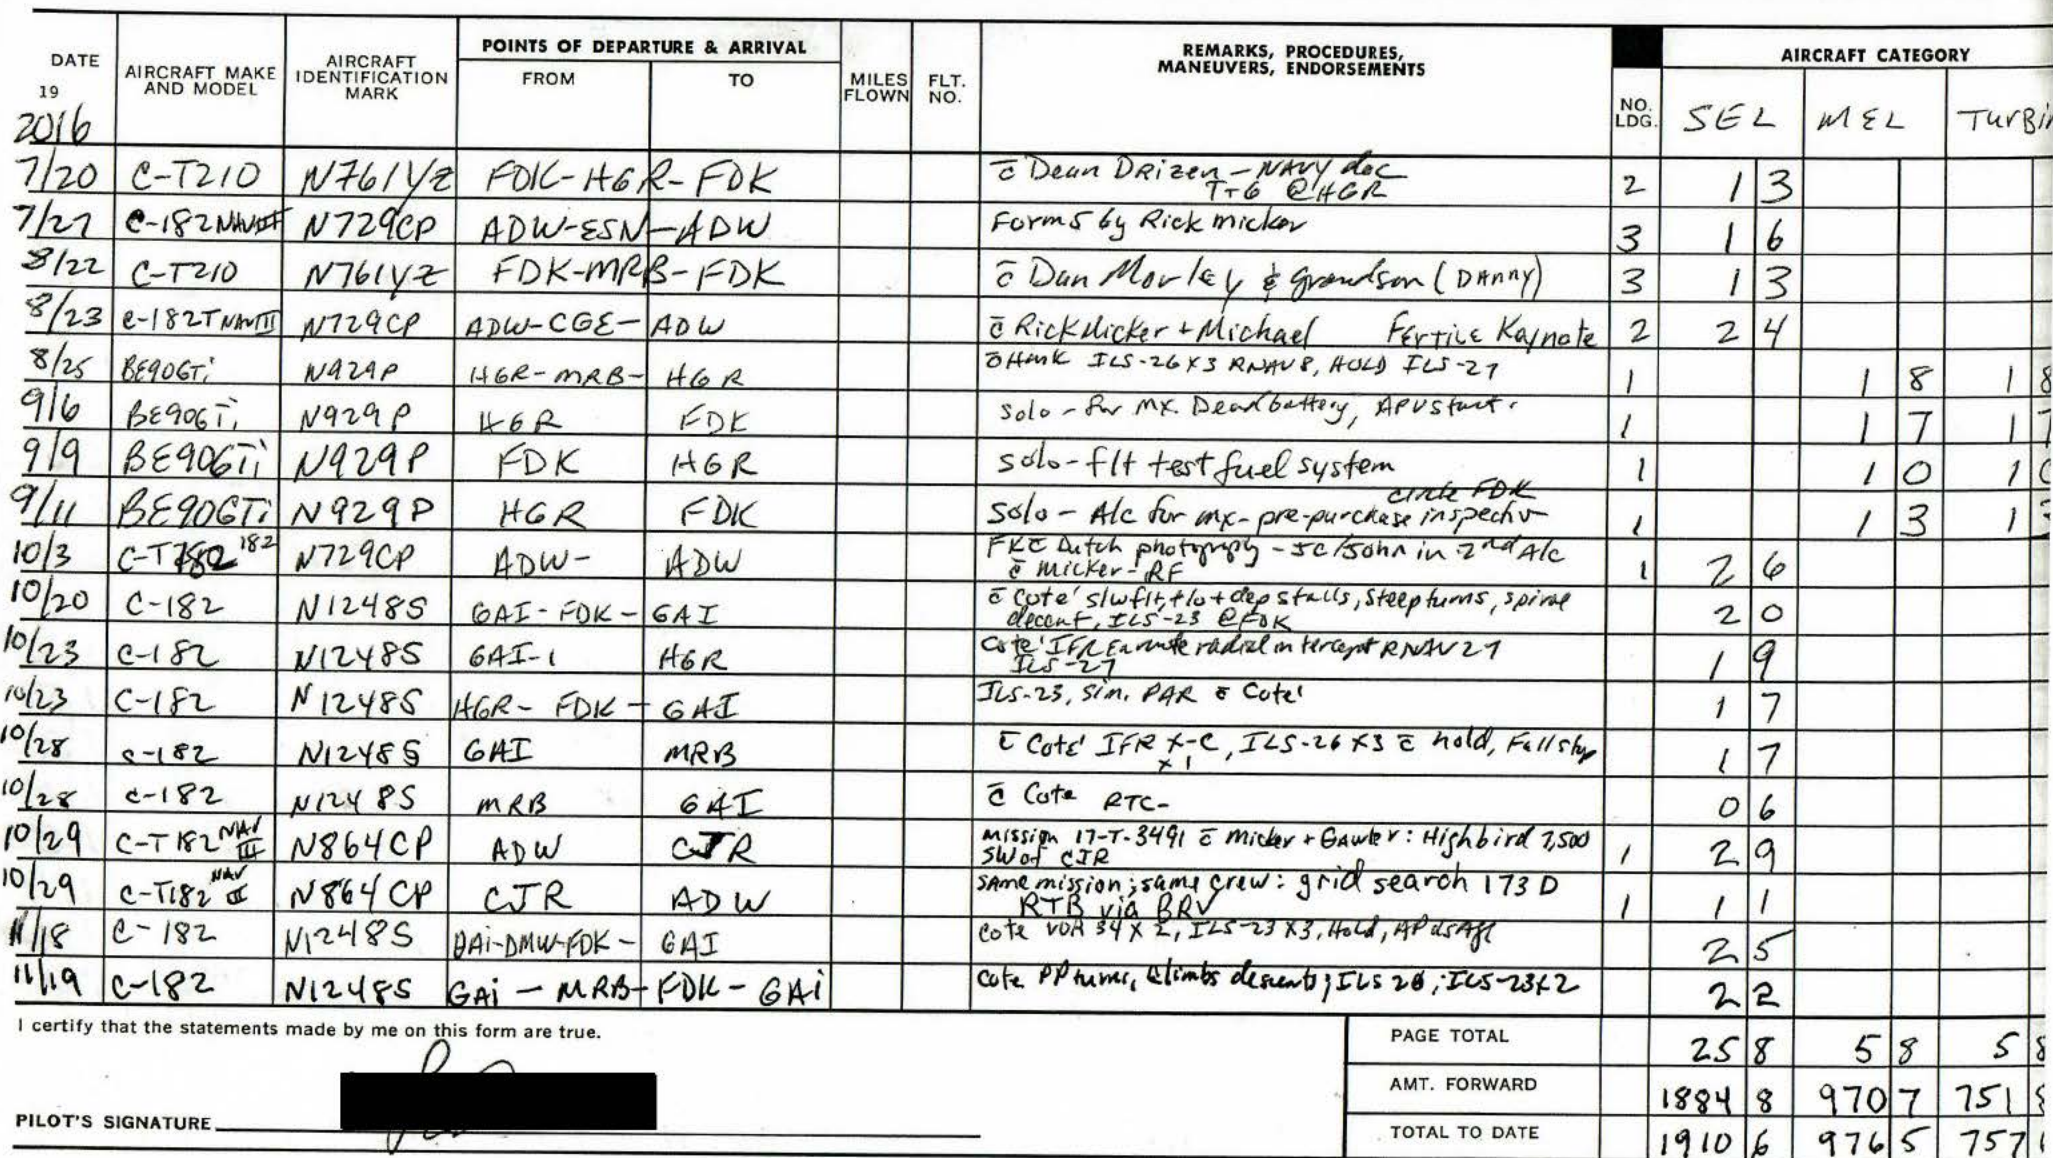 DATE AIRCRAFT MAKE AND MODEL AIRCRAFT IDENTIFICATION MARK POINTS OF DEPARTURE & ARRIVAL FROM TO MILES FLOWN FLT. NO. REMARKS, PROCEDURES, MANEUVERS, ENDORSEMENTS NO. LDG. AIRCRAFT CATEGORY
19
2016 SEL MEL TURBI
7/20 C-T210 N761YZ FDK-HGR-FDK c̄ Dean Drizen - NAVY doc 2 1 3
T+G @HGR
7/27 C-182 NAV III N729CP ADW-ESN-ADW Form 5 by Rick Micker 3 1 6
8/22 C-T210 N761YZ FDK-MRB-FDK c̄ Dan Morley & grandson (DANNY) 3 1 3
8/23 C-182T NAV III N729CP ADW-CGE-ADW c̄ Rick Micker + Michael Fertile Keynote 2 2 4
8/25 BE90GTi N929P HGR-MRB-HGR ILS-26 X3 RNAV 8, HOLD ILS-27 1 1 8 1 8
9/6 BE90GTi N929P HGR FDK solo - for mx. Dead battery, APU start. 1 1 7 1 7
9/9 BE90GTi N929P FDK HGR solo - flt test fuel system 1 1 0 1 0
circle FDK
9/11 BE90GTi N929P HGR FDK solo - A/c for mx - pre-purchase inspectn 1 1 3 1 3
10/3 C-T182 182 N729CP ADW- ADW Dutch photography - in 2nd A/c 1 2 6
c̄ micker - RF
10/20 C-182 N1248S GAI-FDK-GAI c̄ Cote' slwflt, t/o + dep stalls, steep turns, spiral 2 0
decent, ILS-23 @FDK
10/23 C-182 N1248S GAI-1 HGR Cote' IFR Enroute radial intercept RNAV 27 1 9
ILS-27
10/23 C-182 N1248S HGR-FDK-GAI ILS-23, sim. PAR c̄ Cote' 1 7
10/28 C-182 N1248S GAI MRB c̄ Cote' IFR X-C, ILS-26 X3 c̄ hold, Full stop 1 7
x 1
10/28 C-182 N1248S MRB GAI c̄ Cote RTC- 0 6
10/29 C-T182 NAV III N864CP ADW CJR mission 17-T-3491 c̄ Micker + Gawler: Highbird 7,500 1 2 9
SW of CJR
10/29 C-T182 NAV III N864CP CJR ADW SAme mission; same crew: grid search 173 D 1 1 1
RTB via BRV
11/18 C-182 N1248S GAi-DMW-FDK-GAI Cote VOR 34 X 2, ILS-23 X3, Hold, 2 5
11/19 C-182 N1248S GAi-MRB-FDK-GAi Cote PP turns, climbs descents; ILS 26; ILS-23X2 2 2
I certify that the statements made by me on this form are true. PAGE TOTAL 25 8 5 8 5 8
AMT. FORWARD 1884 8 970 7 751
PILOT'S SIGNATURE TOTAL TO DATE 1910 6 976 5 757